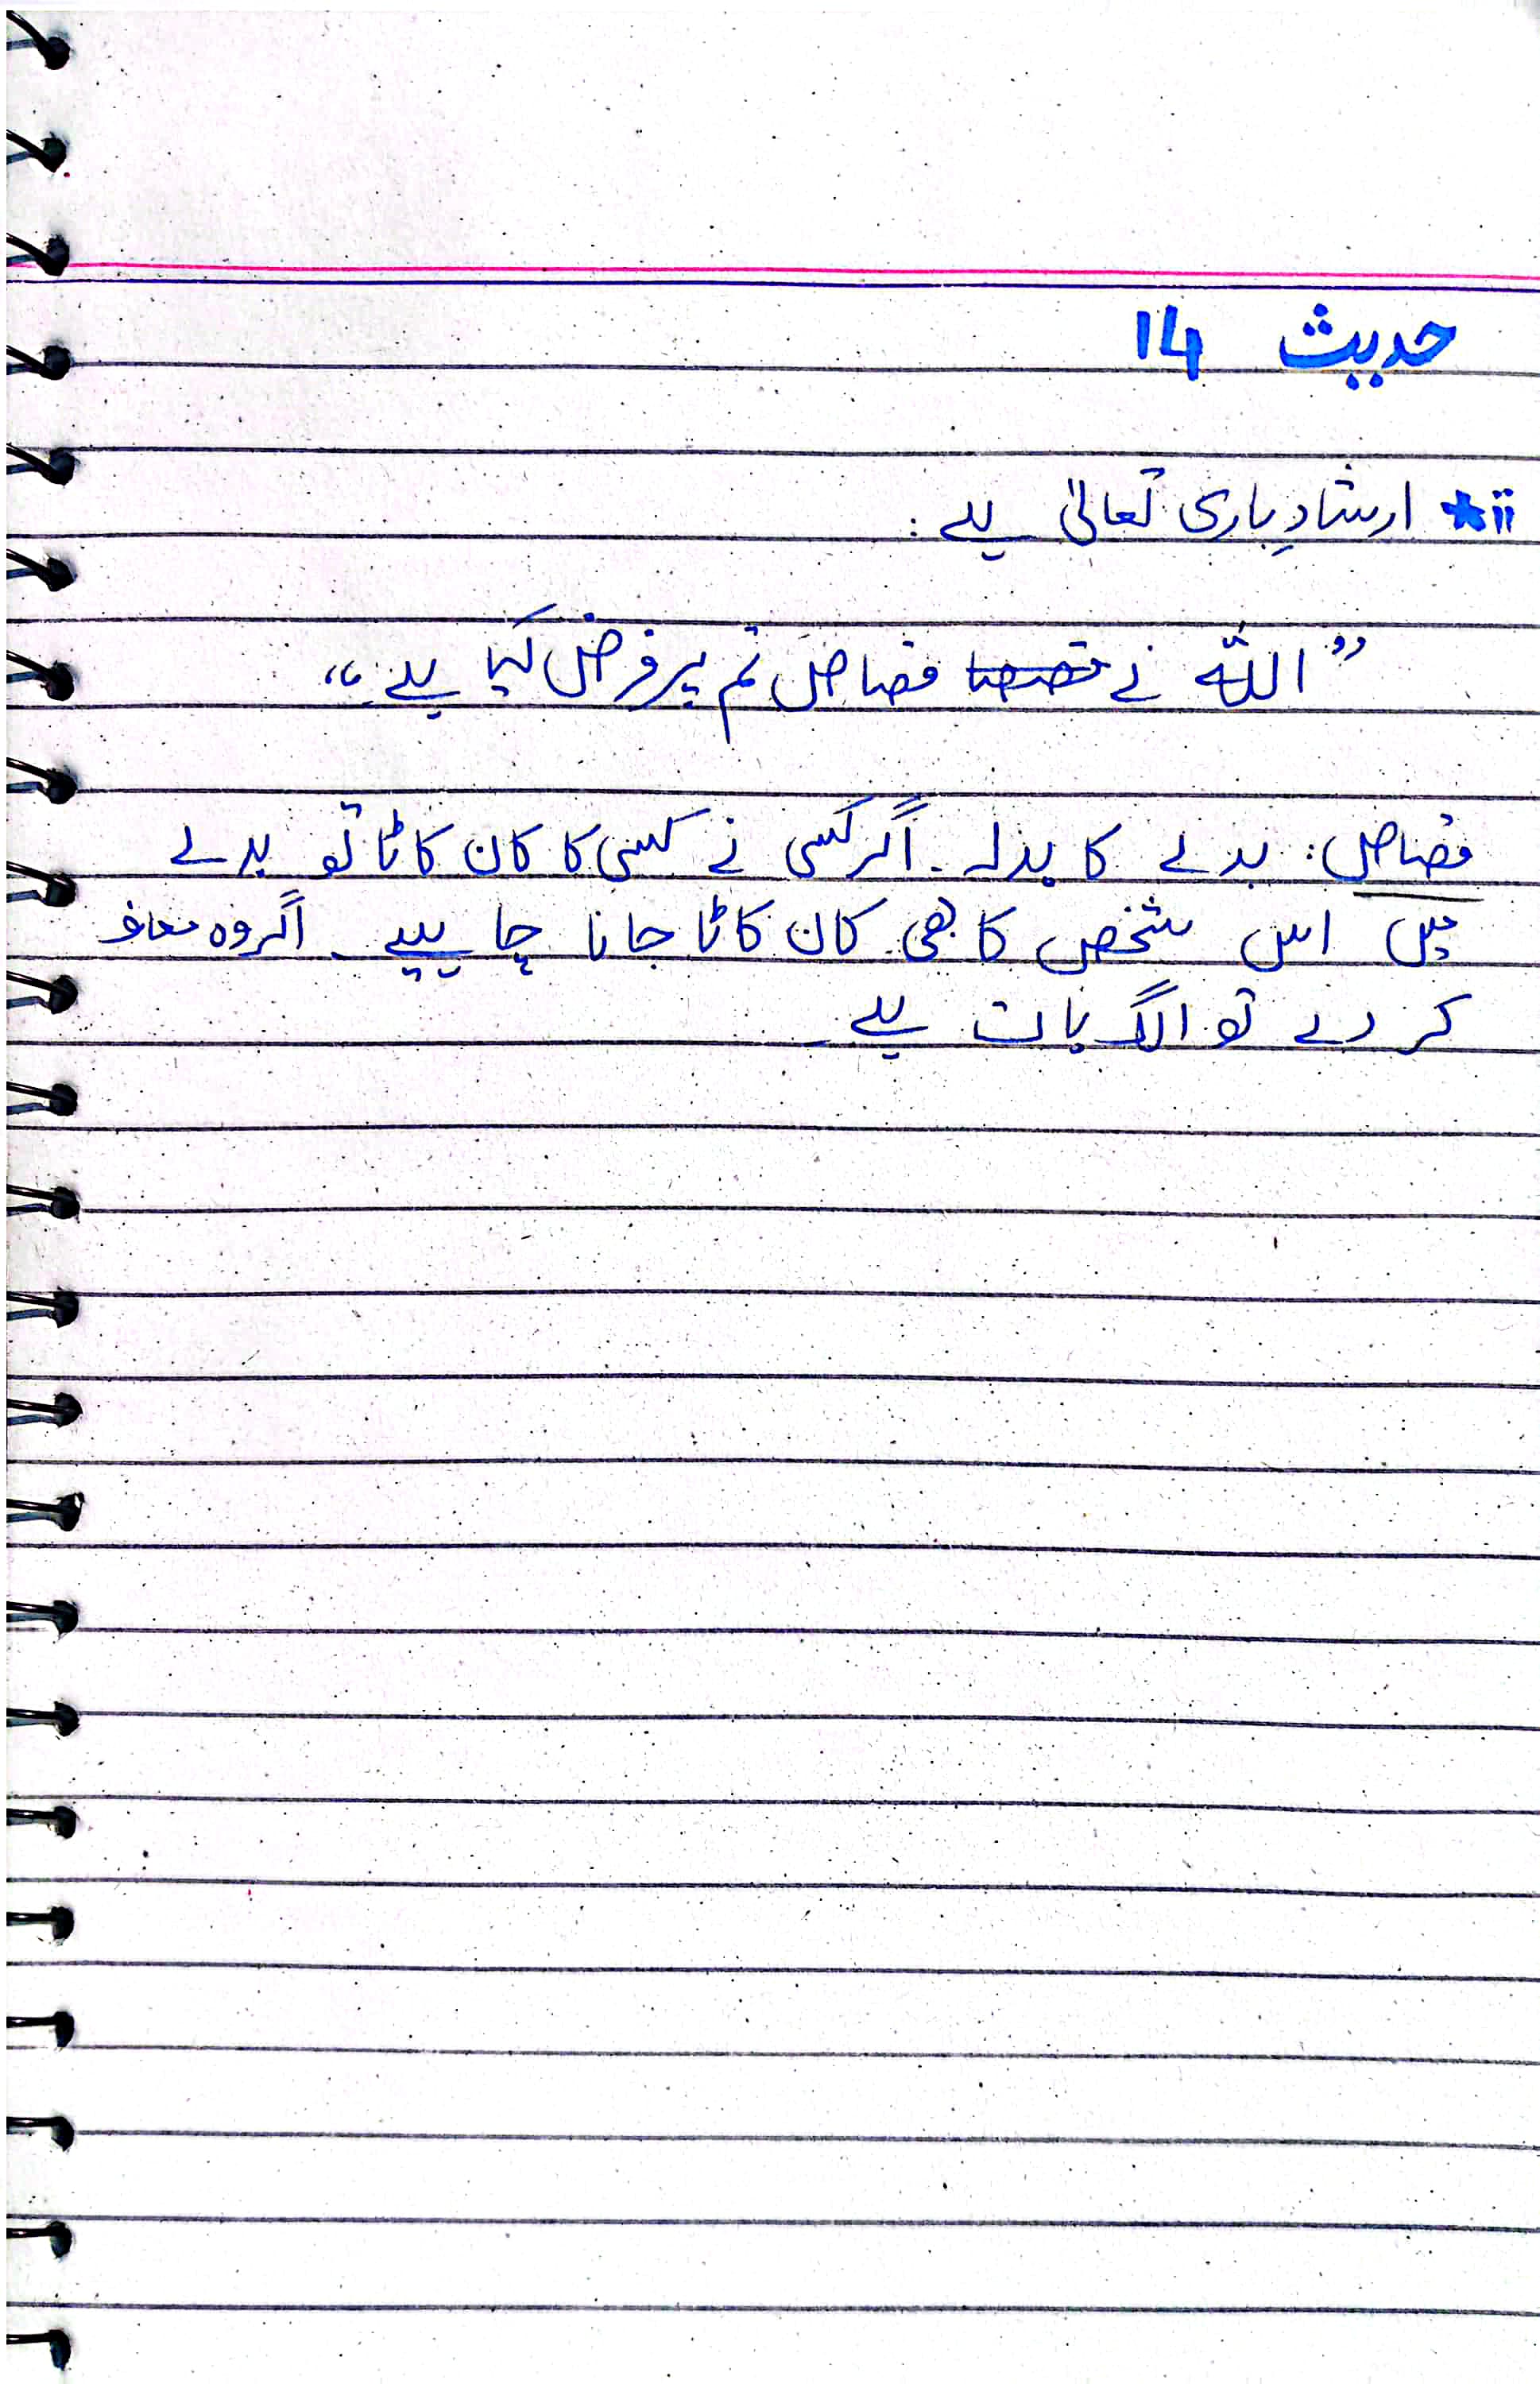 حدیث 14
ii* ارشادِ باری تعالیٰ ہے :
”اللہ نے قصصا قصاص تم پر فرض کیا ہے۔“
قصاص: بدلے کا بدلہ ۔ اگر کسی نے کسی کا کان کاٹا تو بدلے
میں اس شخص کا بھی کان کاٹا جانا چاہیے ۔ اگر وہ معاف
کر دے تو الگ بات ہے ۔